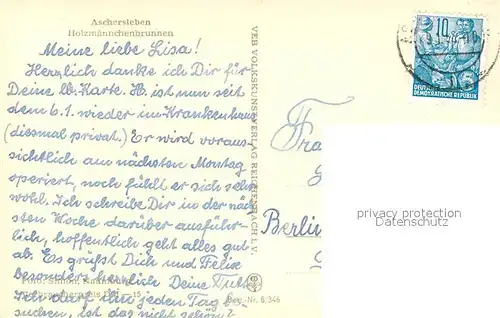 Aschersleben
Holzmännchenbrunnen
Meine liebe Lisa!
Herzlich danke ich Dir für
Deine lb. Karte. H. ist nun seit
dem 6.1. wieder im Krankenhaus
(diesmal privat.) Er wird voraus-
sichtlich am nächsten Montag
operiert, noch fühlt er sich sehr
wohl. Ich schreibe Dir in der näch
sten Woche darüber ausführ-
lich, hoffentlich geht alles gut
ab. Es grüßt Dich und Felix
besonders herzlich Deine
darf ihn jeden Tag be-
suchen, ist das nicht schön?
VEB VOLKSKUNSTVERLAG REICHENBACH I. V.
Reg.-Nr. 6/346
10
DEUTSCHE
DEMOKRATISCHE REPUBLIK
Fra
Berlin
privacy protection
Datenschutz